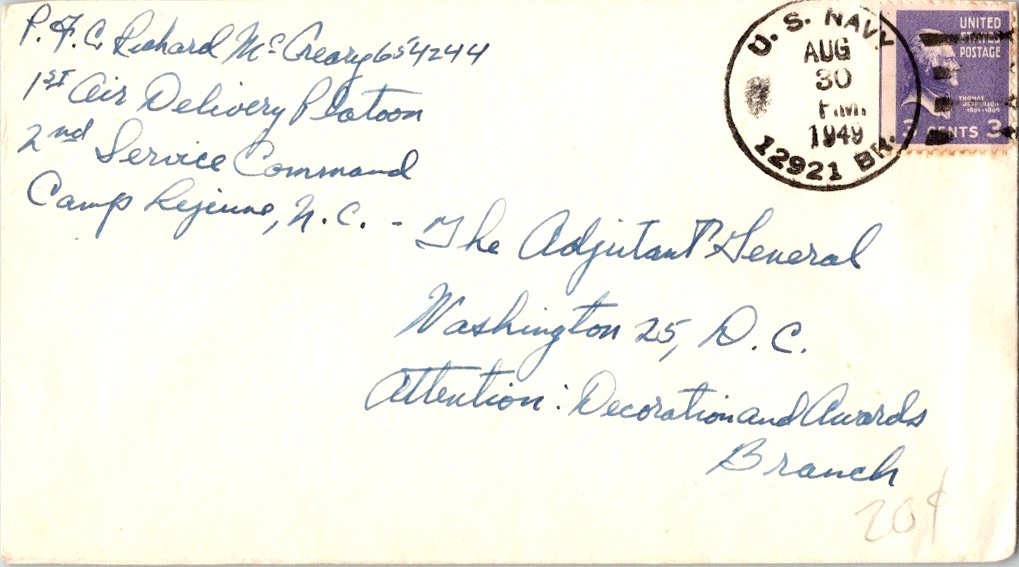 P.F.C. Richard McCreary 654244
1ST Air Delivery Platoon
2nd Service Command
Camp Lejeune, N.C. -
The Adjutant General
Washington 25, D.C.
Attention: Decoration and Awards
Branch
20¢
U.S. NAVY
AUG
30
P.M.
1949
12921 BR.
UNITED
STATES
POSTAGE
THOMAS
JEFFERSON
1801-1809
3 CENTS 3